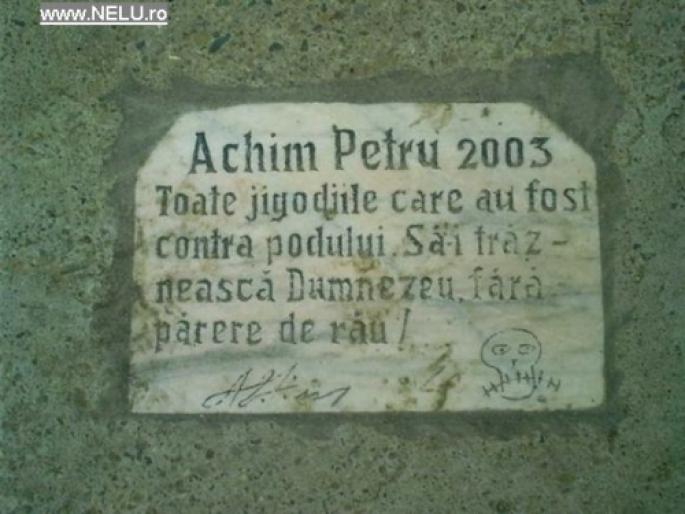 www.NELU.ro
Achim Petru 2003
Toate jigodiile care au fost
contra podului. Să-i trăz-
nească Dumnezeu, fără
părere de rău!